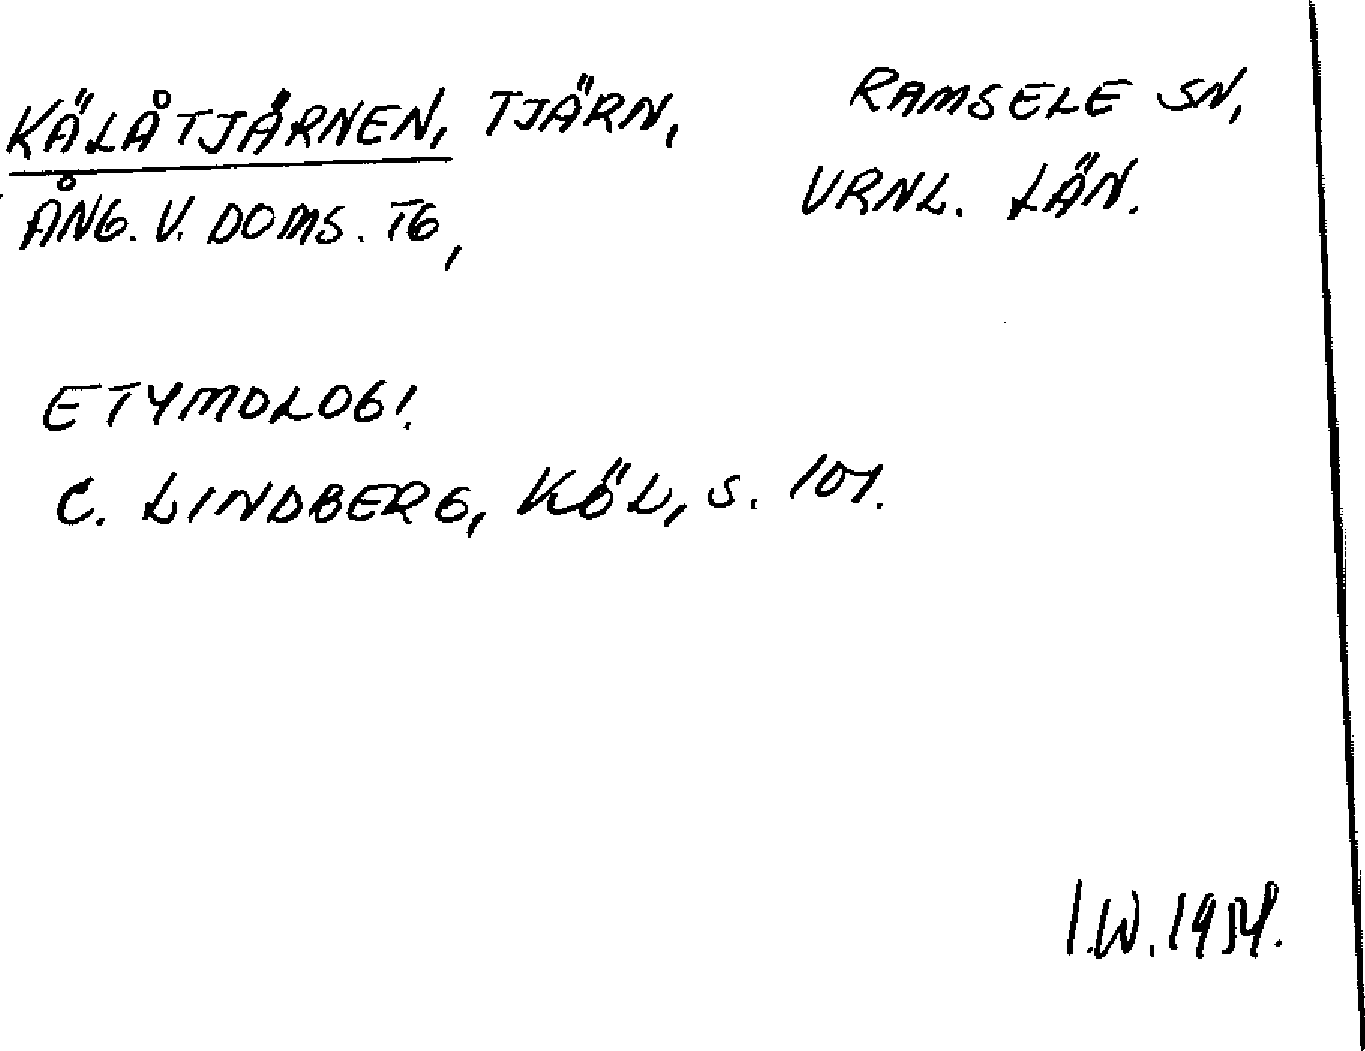 KÄLÅTJÄRNEN, TJÄRN, RAMSELE SN,
ÅNG. V. DOMS. TG, VRNL. LÄN.
ETYMOLOGI.
C. LINDBERG, KÖL, S. 101.
I.W. 1954.